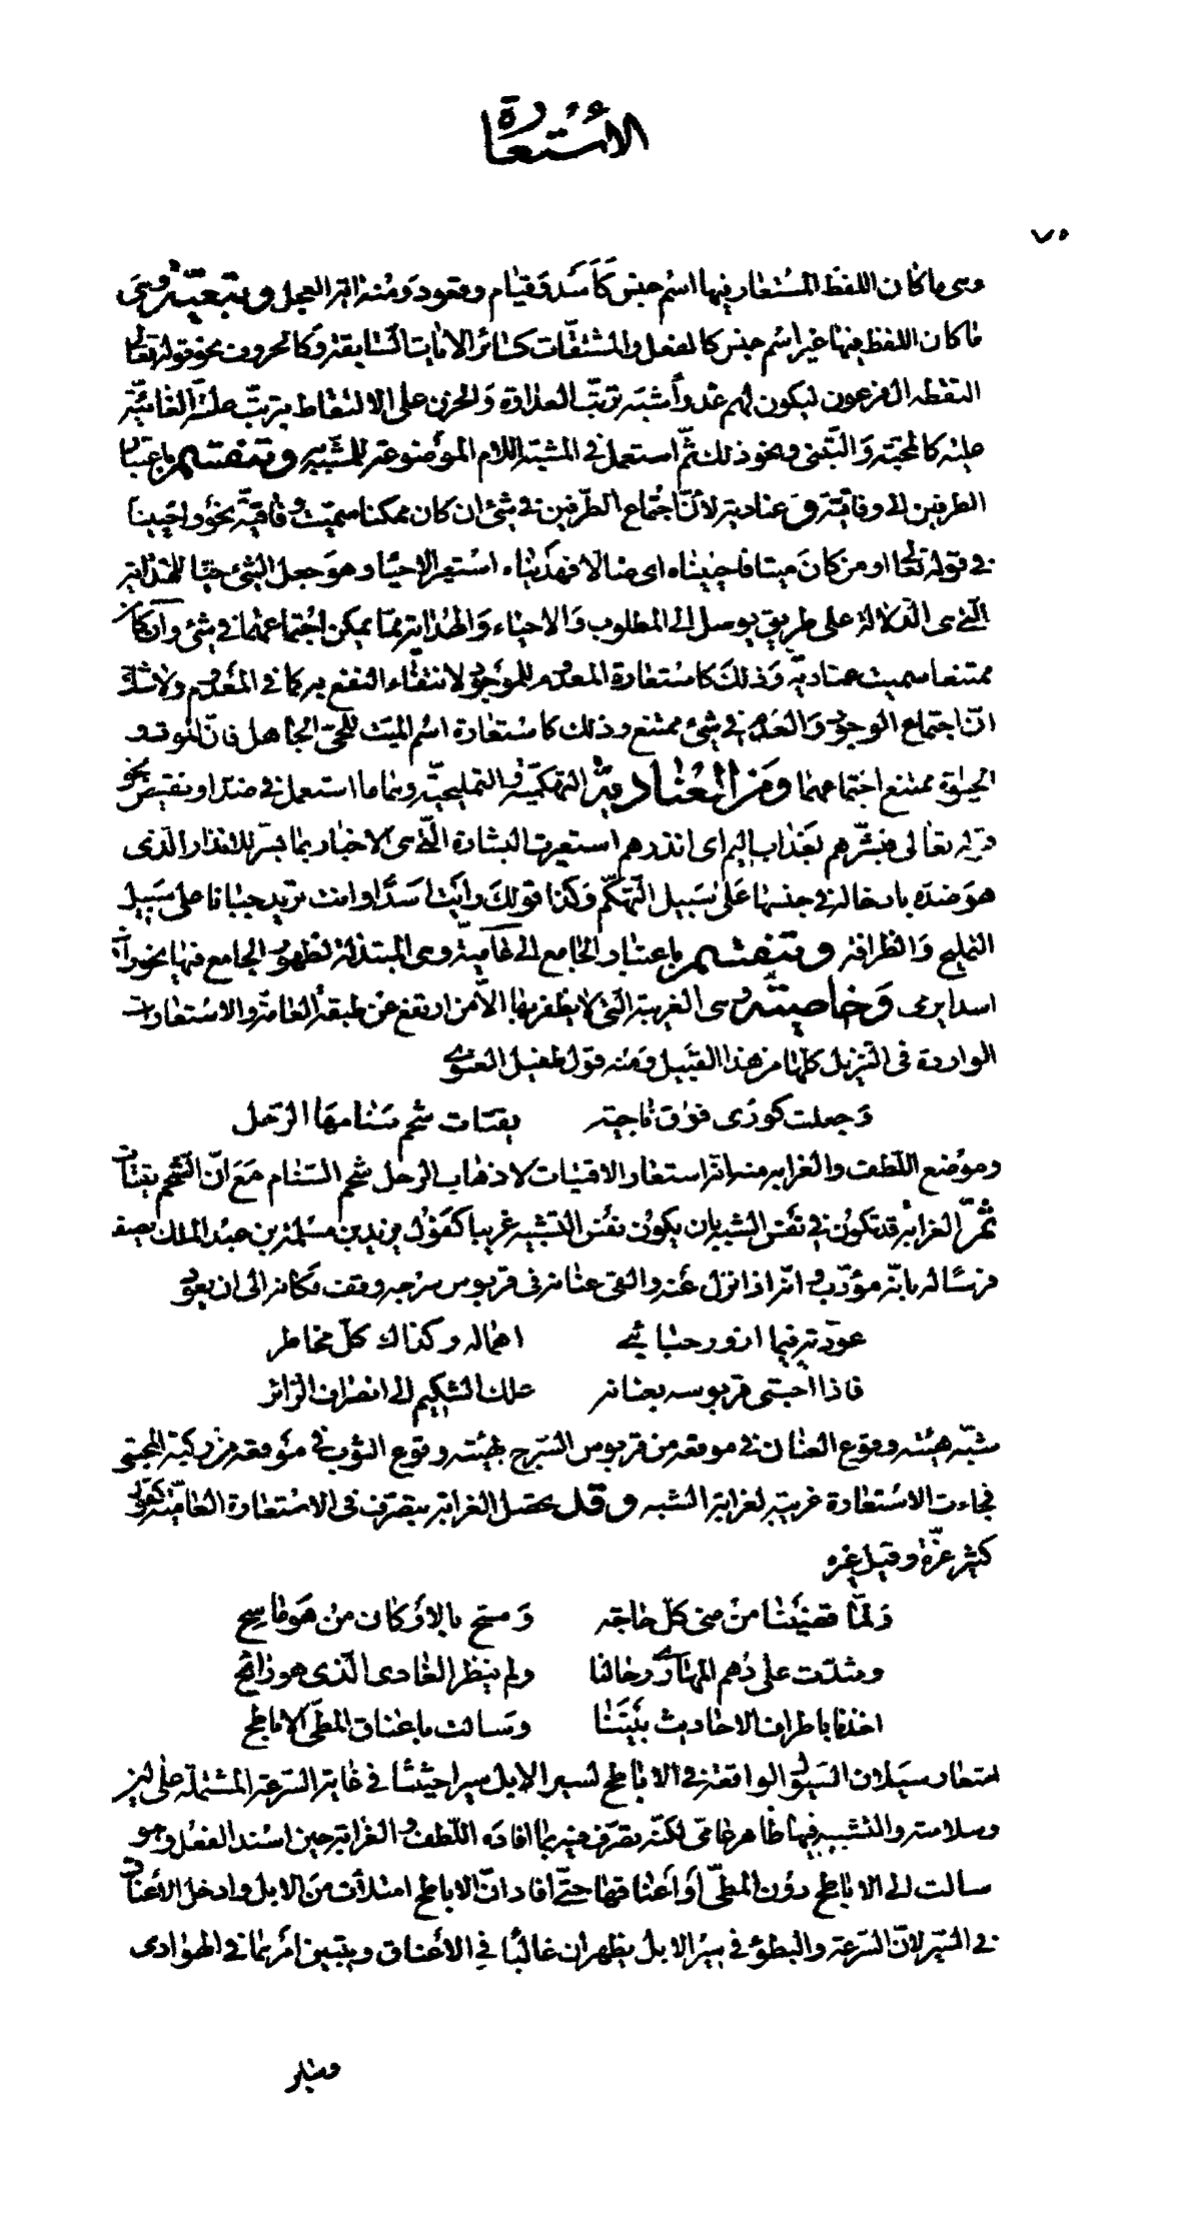 الاستعارة
٧٠
وهي ما كان اللفظ المستعار فيها اسم جنس كأسد وقيام وقعود ومنه اية العجل وتبعية وهي
ما كان اللفظ فيها غير اسم جنس كالفعل والمشتقات كسائر الايات السابقة وكالحروف نحو قوله تعالى
التقطه ال فرعون ليكون لهم عدواً شبه ترتب العداوة والحزن على الالتقاط بترتب علته الغائية
عليه كالمحبة والتبني ونحو ذلك ثم استعمل في المشبه اللام الموضوعة للمشبه به وتنقسم باعتبار
الطرفين الى وفاقية وعنادية لأن اجتماع الطرفين في شئ ان كان ممكنا سميت وفاقية نحو واحيينا
في قوله تعالى او من كان ميتا فاحييناه اى ضالا فهديناه استعير الاحياء وهو جعل الشئ حيا للهداية
التي هى الدلالة على طريق يوصل الى المطلوب والاحياء والهداية مما يمكن اجتماعهما في شئ وان كان
ممتنعا سميت عنادية وذلك كاستعارة المعدوم للموجود لانتفاء النفع به كما في المعدوم ولا شك
ان اجتماع الوجود والعدم في شئ ممتنع وذلك كاستعارة اسم الميت للحى الجاهل فان الموت و
الحيوة ممتنع اجتماعهما ومن العنادية التهكمية والتمليحية وهما ما استعمل في ضد او نقيض نحو
قوله تعالى فبشرهم بعذاب اليم اى انذرهم استعيرت البشارة التي هى الاخبار بما يسر للانذار الذى
هو ضده بادخاله في جنسها على سبيل التهكم وكذا قولك رأيت اسداً وانت تريد جبانا على سبيل
التمليح والظرافة وتنقسم باعتبار الجامع الى عامية وهى المبتذلة لظهور الجامع فيها نحو رأيت
اسدا يرمى وخاصية وهى الغريبة التي لا يظفر بها الا من ارتفع عن طبقة العامة والاستعارات
الواردة في التنزيل كلها من هذا القبيل ومنه قول طفيل الغنوى
وجعلت كورى فوق ناجية يقتات شحم سنامها الرحل
وموضع اللطف والغرابة منه انه استعار الاقتيات لاذهاب الرحل شحم السنام مع ان الشحم يقتات
ثم الغرابة قد تكون في نفس الشبه بان يكون نفس التشبيه غريبا كقول يزيد بن مسلمة بن عبد الملك يصف
فرسًا له بانه مؤدب وانه اذا نزل عنه والقى عنانه في قربوس سرجه وقف مكانه الى ان يعود
عودته فيما ازور حبائبى اهماله وكذاك كل مخاطر
فاذا احتبى قربوسه بعنانه علك الشكيم الى انصراف الزائر
شبه هيئة وقوع العنان في موقعه من قربوس السرج بهيئة وقوع الثوب في موقعه من ركبة المحتبى
فجاءت الاستعارة غريبة لغرابة الشبه وقد يحصل الغرابة بتصرف في الاستعارة العامية كقول
كثير عزة وقيل غيره
ولما قضينا من منى كل حاجة ومسح بالاركان من هو ماسح
وشدت على دهم المهارى رحالنا ولم ينظر الغادى الذى هو رائح
اخذنا باطراف الاحاديث بيننا وسالت باعناق المطى الاباطح
استعار سيلان السيول الواقعة في الاباطح لسير الابل سيرا حثيثا في غاية السرعة المشتملة على لين
وسلاسة والتشبيه فيها ظاهر عامى لكنه تصرف فيه بما افاده اللطف والغرابة حين اسند الفعل وهو
سالت الى الاباطح دون المطى او اعناقها حتى افاد ان الاباطح امتلأت من الابل وادخل الأعناق
في السير لان السرعة والبطؤ في سير الابل يظهران غالبًا في الأعناق ويتبين امرهما في الهوادى